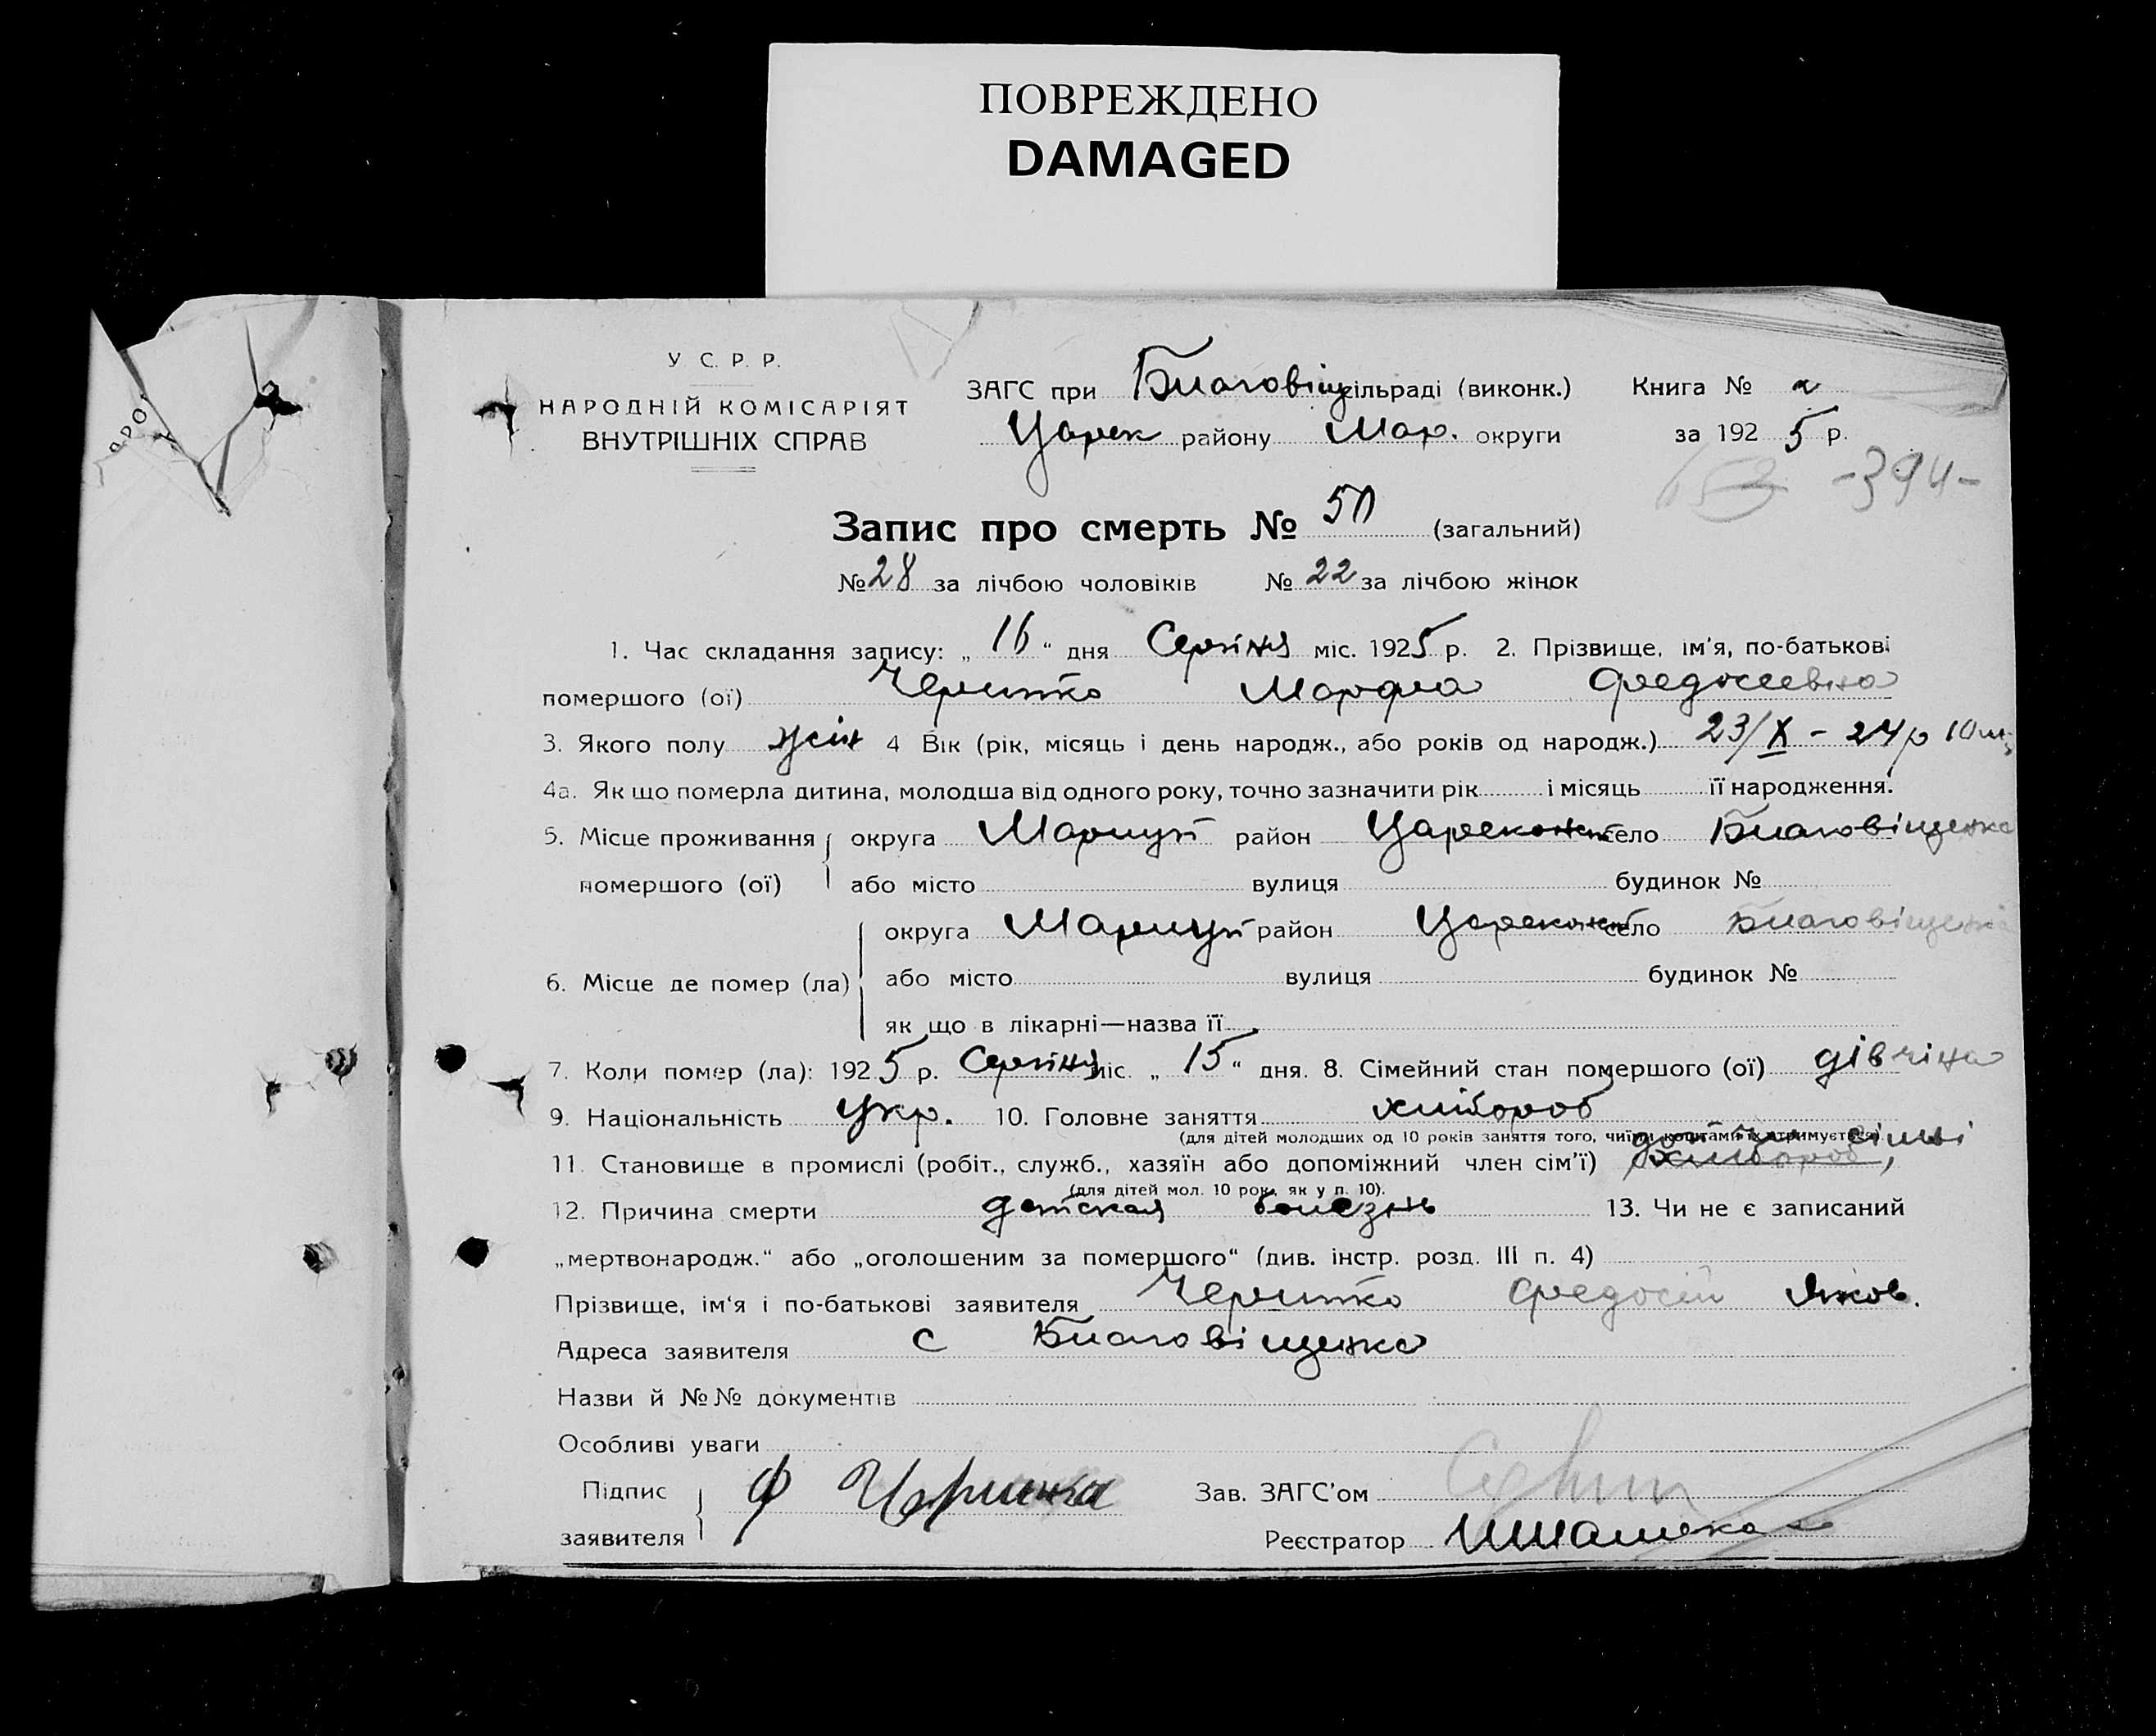 ПОВРЕЖДЕНО
DAMAGED
У. С. Р. Р.
НАРОДНІЙ КОМІСАРІЯТ
ВНУТРІШНІХ СПРАВ
ЗАГС при Благовіщ сільраді (виконк.) Книга №
Царек району Мар. округи за 1925 р.
-394-
Запис про смерть № 50 (загальний)
№ 28 за лічбою чоловіків № 22 за лічбою жінок
1. Час складання запису: „16“ дня Серпня міс. 1925 р. 2. Прізвище, ім'я, по-батькові
помершого (ої) Марфа Федосеевна
3. Якого полу жін 4 Вік (рік, місяць і день народж., або років од народж.) 23/X - 24р 10 м;
4а. Як що померла дитина, молодша від одного року, точно зазначити рік і місяць її народження.
5. Місце проживання округа Маріуп район Царекон село Благовіщенка
помершого (ої) або місто вулиця будинок №
округа Маріуп район Царекон село Благовіщенка
6. Місце де помер (ла) або місто вулиця будинок №
як що в лікарні—назва її
7. Коли помер (ла): 1925 р. Серпня міс. „15“ дня. 8. Сімейний стан помершого (ої) дівчіна
9. Національність Укр. 10. Головне заняття хлібороб
(для дітей молодших од 10 років заняття того, чиїми коштами їх утримується)
11. Становище в промислі (робіт., служб., хазяїн або допоміжний член сім'ї) хлібороб,
(для дітей мол. 10 рок., як у п. 10).
12. Причина смерти детская болезнь 13. Чи не є записаний
„мертвонародж.“ або „оголошеним за помершого“ (див. інстр. розд. III п. 4)
Прізвище, ім'я і по-батькові заявителя Федосій Яков.
Адреса заявителя с Благовіщенка
Назви й №№ документів
Особливі уваги
Підпис
заявителя Ф
Зав. ЗАГС'ом
Реєстратор